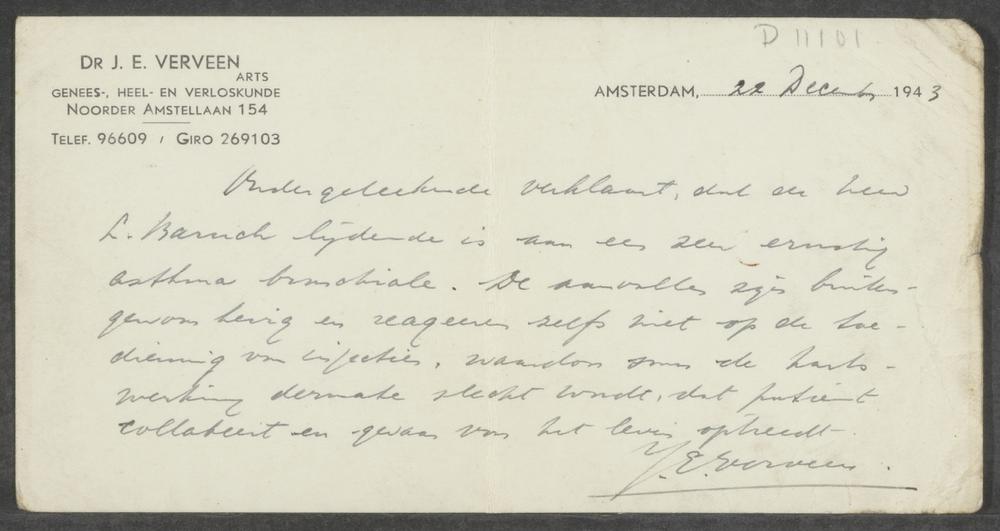 D 11101
DR J. E. VERVEEN
ARTS
GENEES-, HEEL- EN VERLOSKUNDE
NOORDER AMSTELLAAN 154
TELEF. 96609 / GIRO 269103
AMSTERDAM, 22 December 1943
Ondergeteekende verklaart, dat de Heer
L. Baruch lijdende is aan een zeer ernstig
asthma bronchiale. De aanvallen zijn buiten-
gewoon hevig en reageeren zelfs niet op de toe-
diening van injecties, waardoor soms de harts-
werking dermate slecht wordt, dat patient
collabeert en gevaar voor het leven optreedt.
J. E. Verveen.